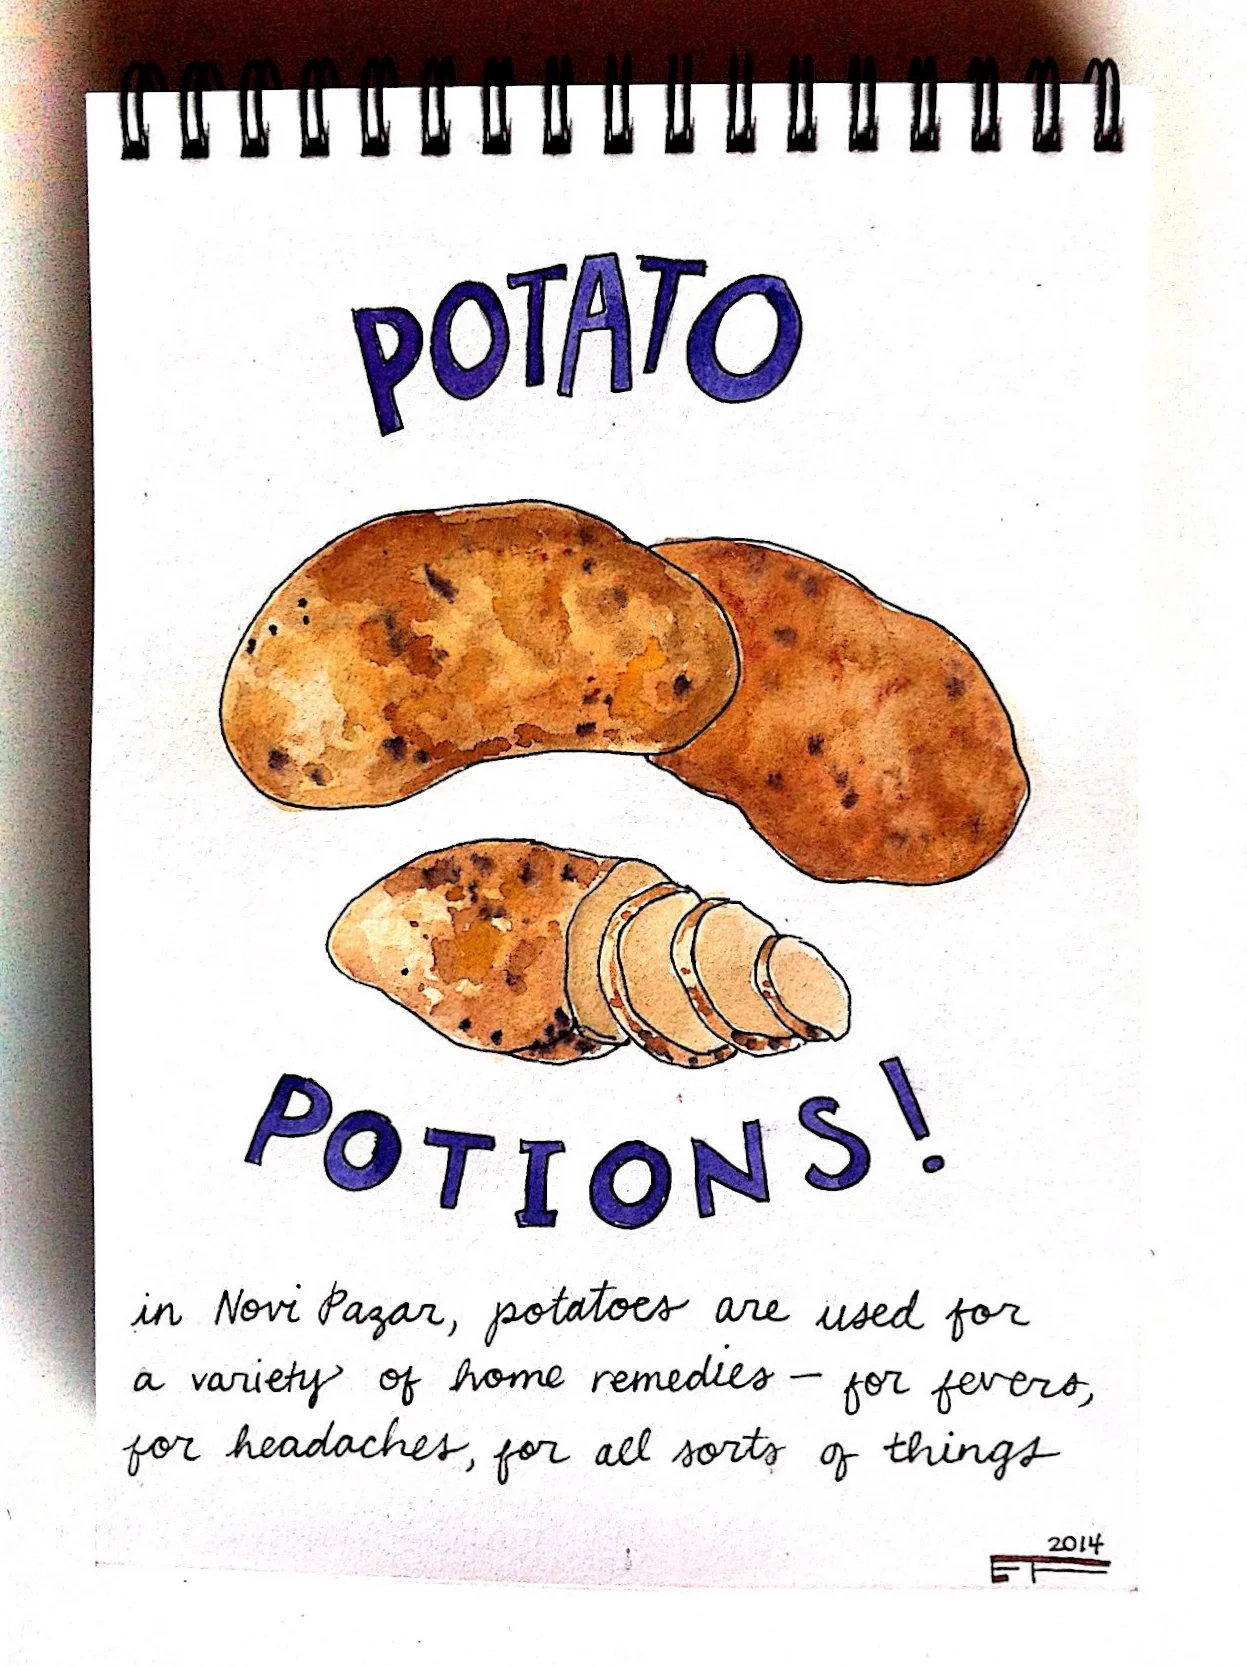 POTATO
POTIONS!
in Novi Pazar, potatoes are used for
a variety of home remedies — for fevers,
for headaches, for all sorts of things
2014
ET